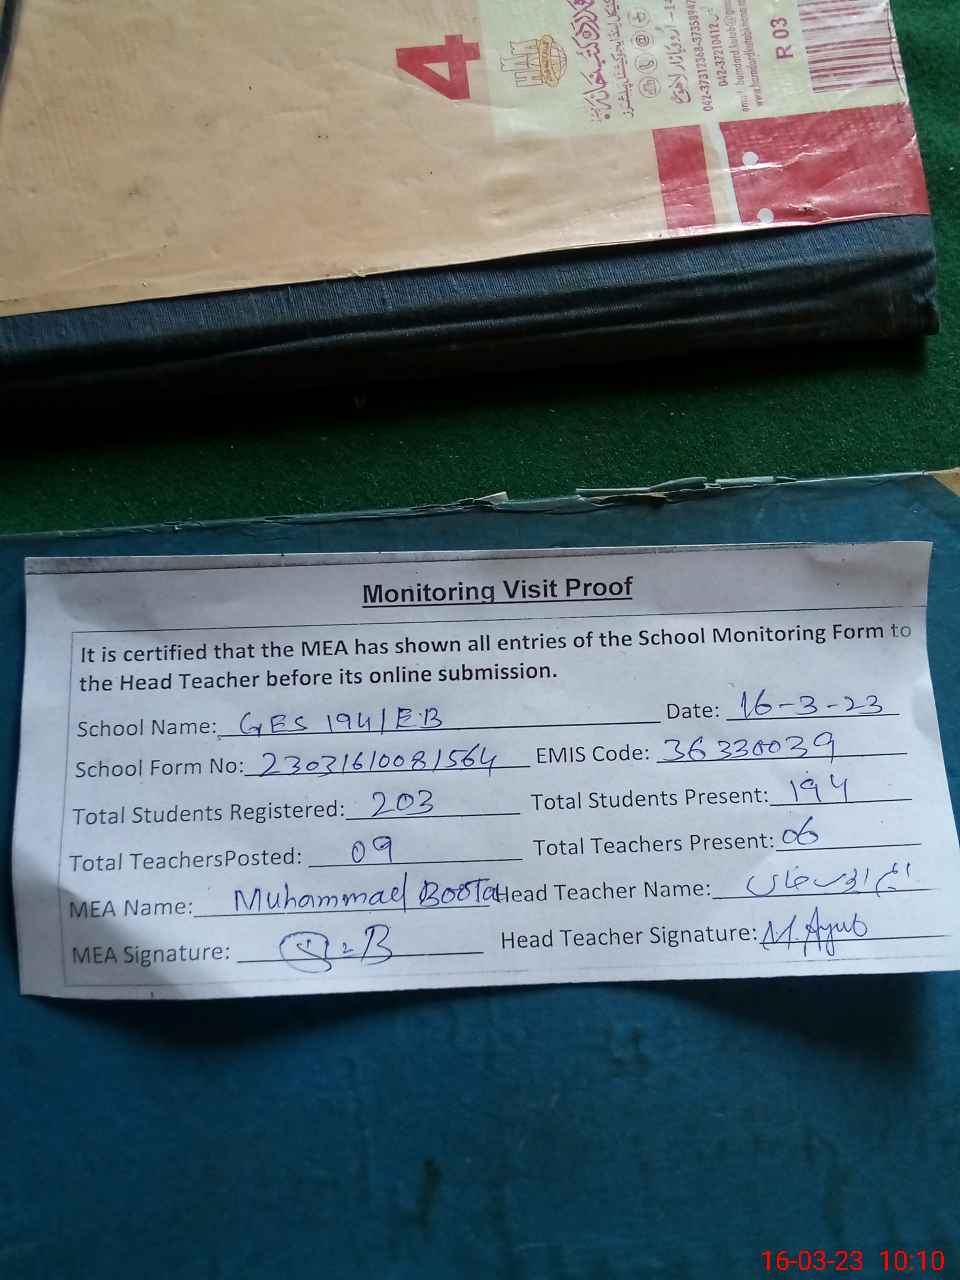 4
042-37312368-37358947
042-37210412
R 03
Monitoring Visit Proof
It is certified that the MEA has shown all entries of the School Monitoring Form to
the Head Teacher before its online submission.
School Name: GES 194/E.B Date: 16-3-23
School Form No: 23031610081564 EMIS Code: 36330039
Total Students Registered: 203 Total Students Present: 194
Total TeachersPosted: 09 Total Teachers Present: 06
MEA Name: Muhammad Boota Head Teacher Name:
MEA Signature: Head Teacher Signature: M. Ayub
16-03-23 10:10